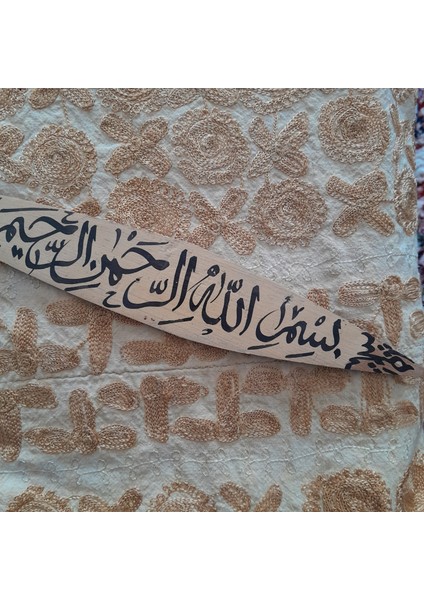 بِسْمِ اللّٰهِ الرَّحْمٰنِ الرَّحِيم